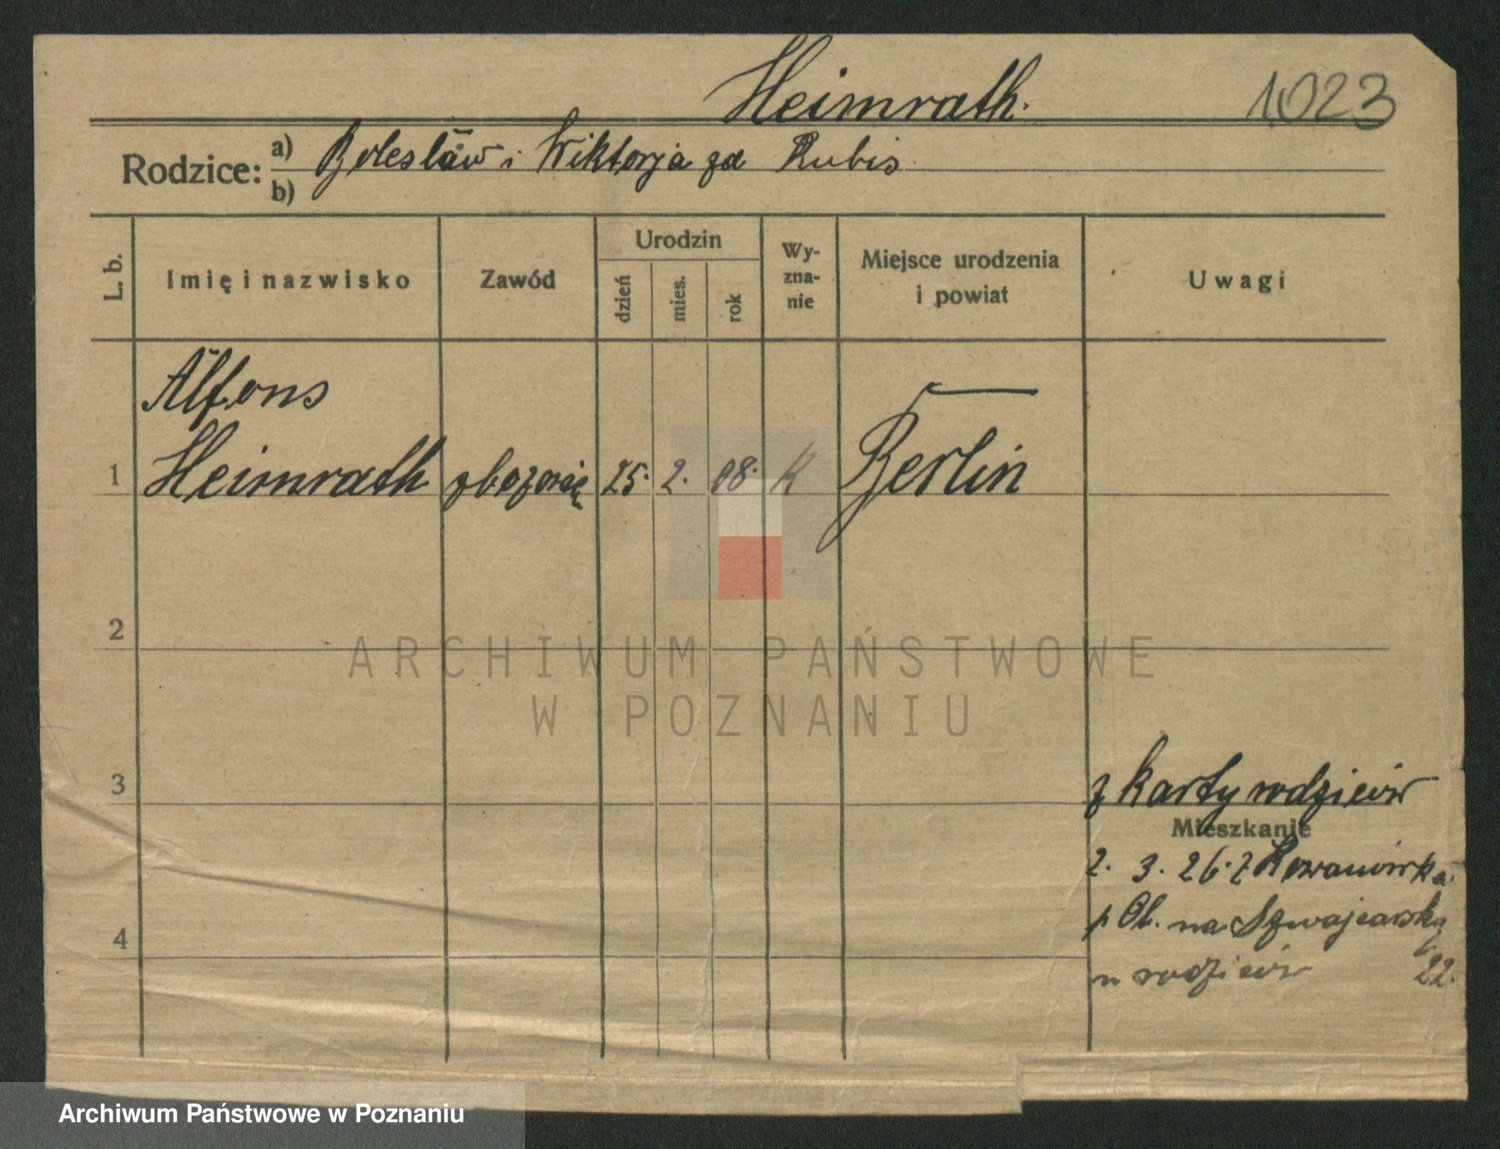 Heimrath. 1023
Rodzice: a) Bolesław i Wiktorja zd Kubis
b)
L. b.
Imię i nazwisko
Zawód
Urodzin
dzień
mies.
rok
Wy-
zna-
nie
Miejsce urodzenia
i powiat
Uwagi
Alfons
1 Heimrath 25. 2. 08. K Berlin
2
ARCHIWUM PAŃSTWOWE
W POZNANIU
3
z karty rodziców
Mieszkanie
2. 3. 26. z
p Ob. na Szwajcarską
4
u rodziców 22.
Archiwum Państwowe w Poznaniu